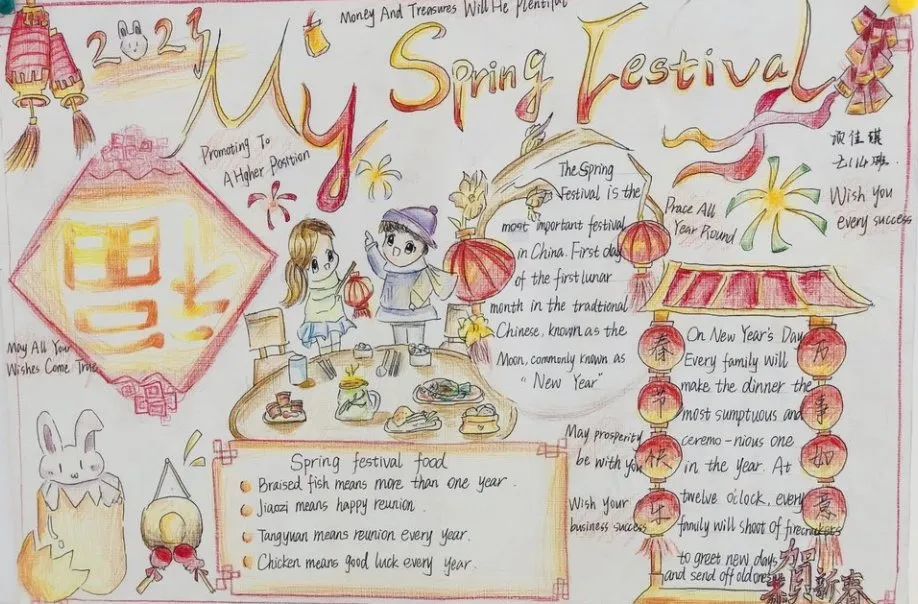 Money And Treasures Will He Plentiful
2023
My Spring Festival
Promoting To
A Hgher Position
福
May All Your
Wishes Come True
The Spring
Festival is the
most important festival
in China. First day
of the first lunar
month in the tradtional
Chinese, known as the
Moon, commonly known as
"New Year"
Prace All
Year Round
Wish You
every success
On New Year's Day
Every family will
make the dinner the
most sumptuous and
ceremo-nious one
in the year. At
twelve oiclock, every
family will shoot of firecrackers
to greet new days
and send off old ones
春节快乐
万事如意
May prosperity
be with you
Wish Your
business success
Spring festival food
Braised fish means more than one year.
Jiaozi means happy reunion.
Tangyuan means reunion every year.
Chicken means good luck every year.
贺新春